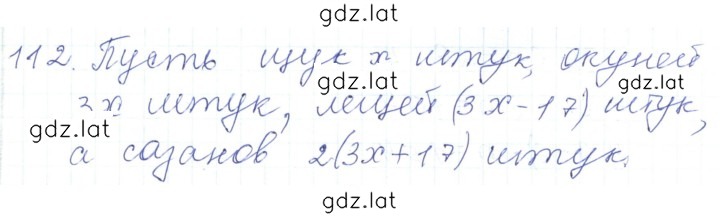 gdz.lat
112. Пусть щук x штук, окуней
gdz.lat
3x штук, лещей (3x-17) штук,
gdz.lat
а сазанов 2(3x+17) штук.
gdz.lat